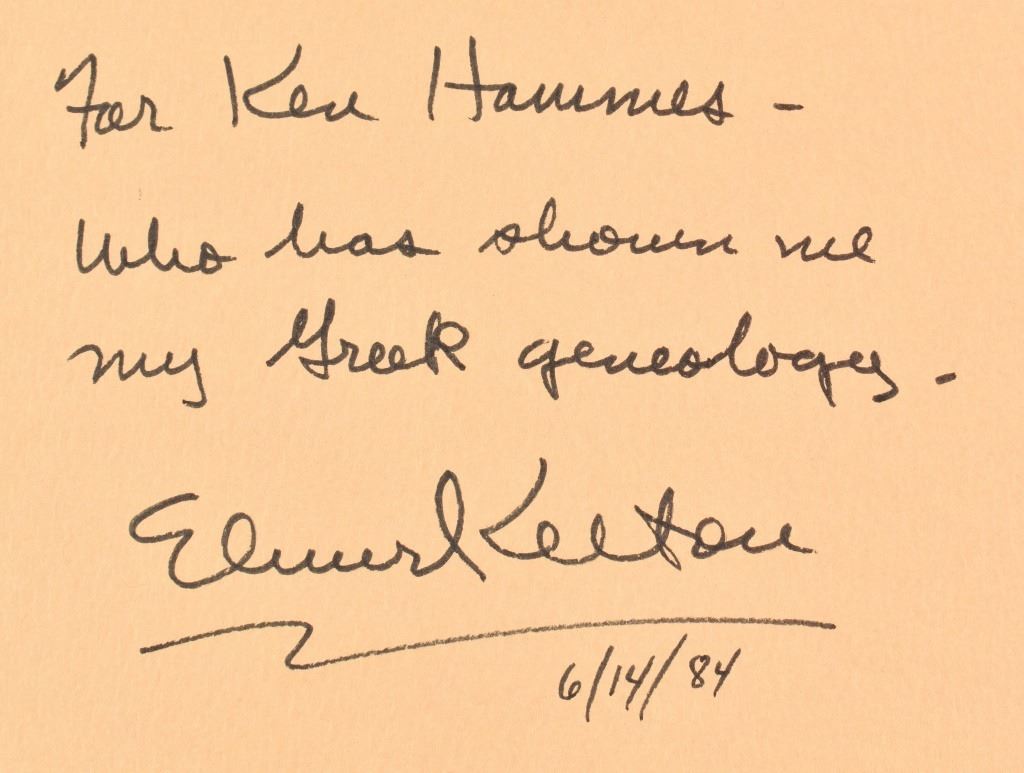 For Ken Hammes -
who has shown me
my Greek geneology.
Elmer Kelton
6/14/84